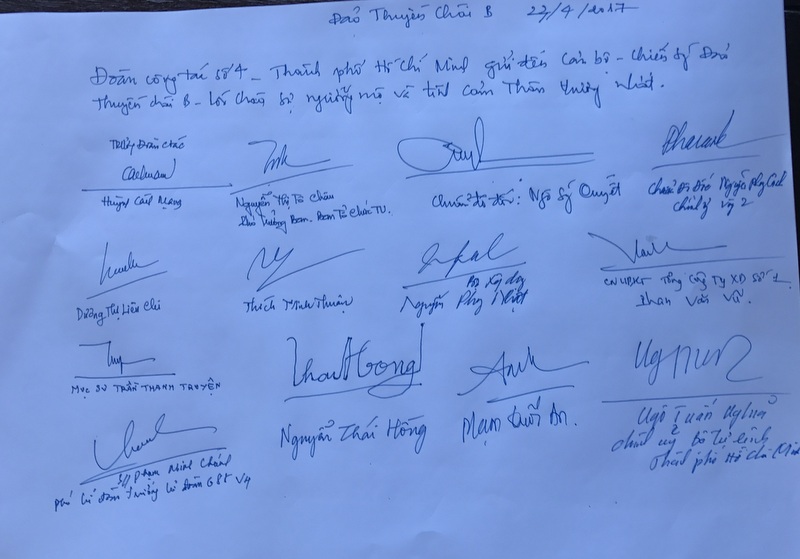 Đảo Thuyền Chài B 22/4/2017
Đoàn công tác số 4 - Thành phố Hồ Chí Minh gửi đến cán bộ - chiến sỹ Đảo
Thuyền chài B - lời chào sự ngưỡng mộ và tình cảm Thân thương nhất.
Trưởng Đoàn công tác
Huỳnh Cách Mạng
Nguyễn Thị Tố Châu
Phó Trưởng Ban. Ban Tổ Chức TU.
Chuẩn đô đốc: Ngô Sỹ Quyết
Nguyễn Phong Cảnh
chính ủy vùng 2
Dương Thị Liên Chi
Thích Minh Thuận
Bộ Xây dựng
Nguyễn Nhật
CN UBKT Tổng Công Ty XD Số 1
Phan Văn Vũ
Mục sư TRẦN THANH TRUYỆN
Thái Hồng
Nguyễn Thái Hồng
Anh
Phạm Quốc An.
Ngô Tuấn Nghĩa
chính uỷ Bộ Tư lệnh
thành phố Hồ Chí Minh
Phạm Minh
Phó lữ đoàn trưởng lữ đoàn V4